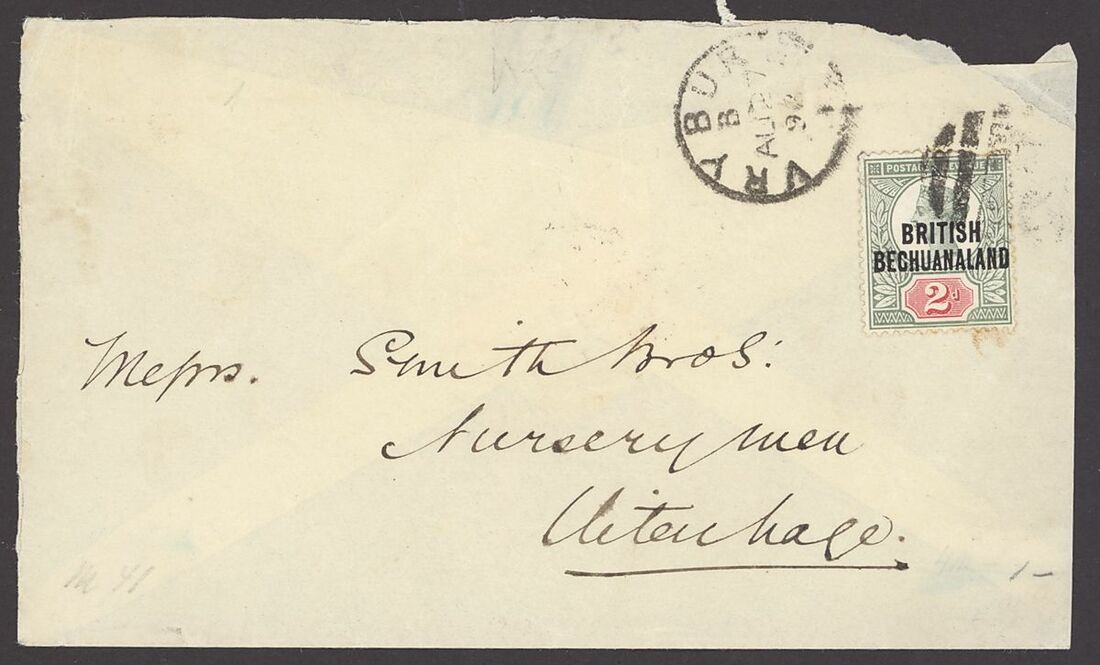 VRYBUR
B
AU 27
92
POSTAGE REVENUE
BRITISH
BECHUANALAND
2d
Messrs. Smith Bros:
Nurserymen
Uitenhage.
1-